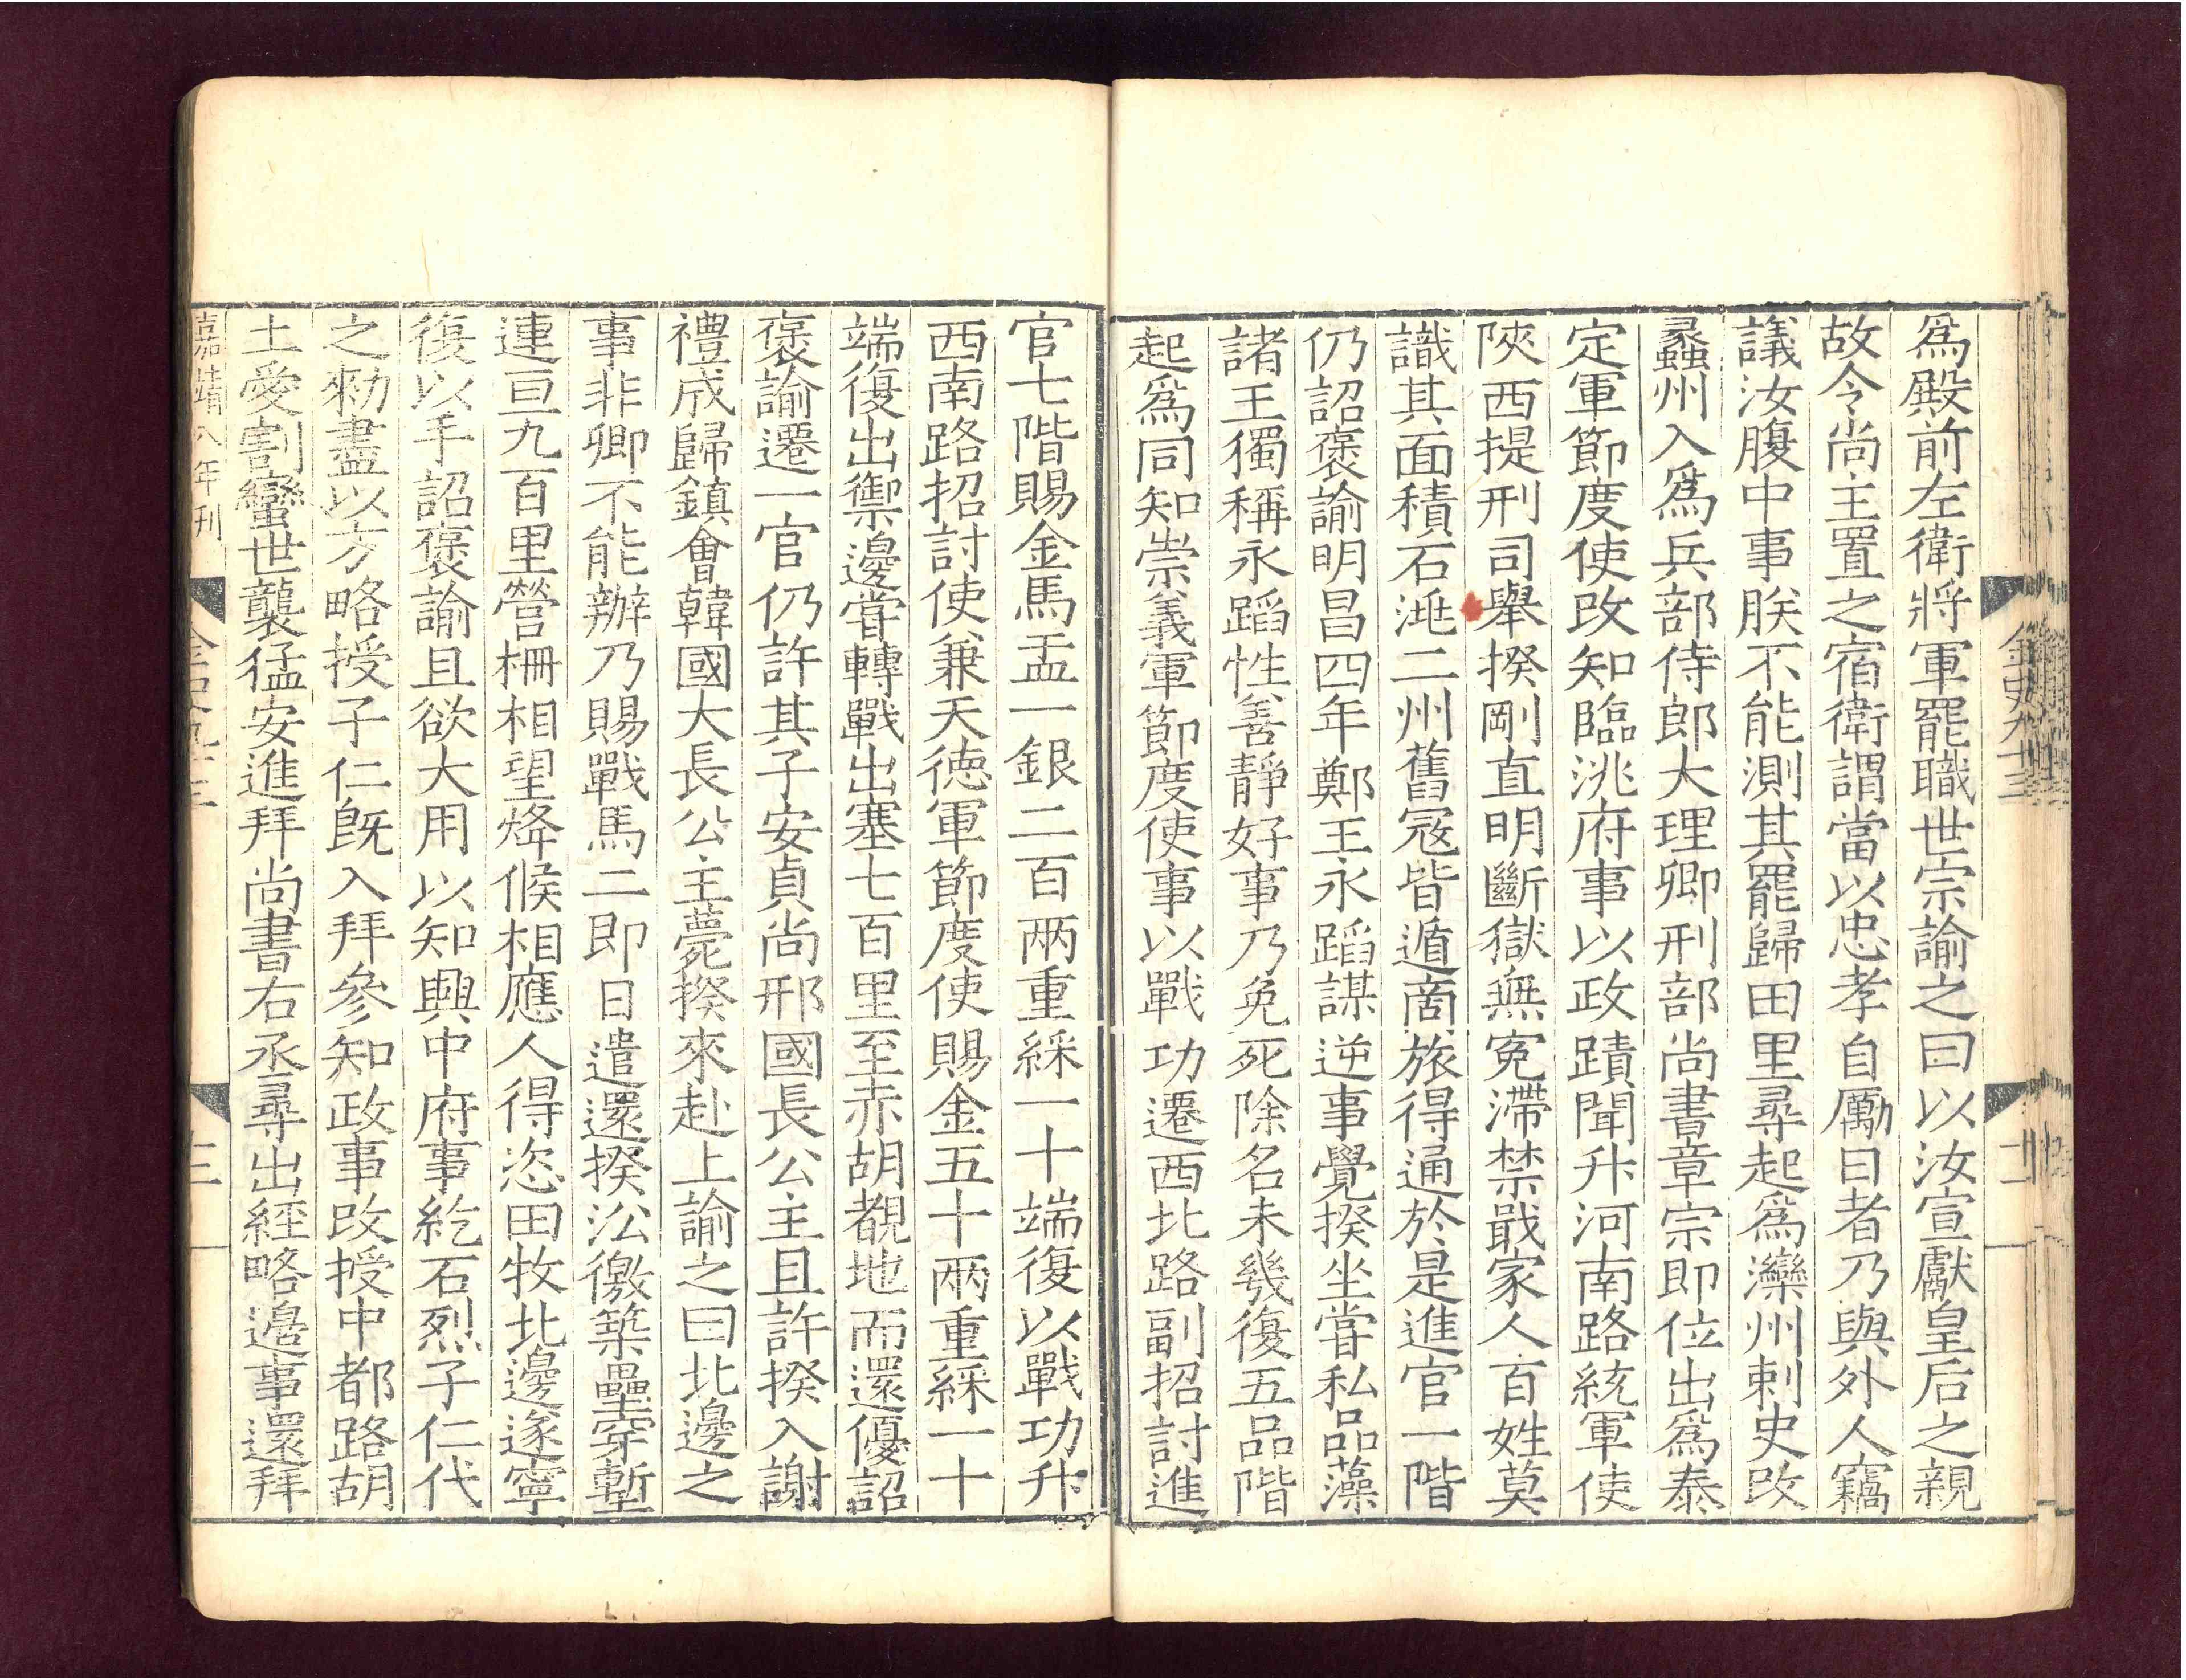 爲殿前左衛將軍罷職世宗諭之曰以汝宣獻皇后之親
故令尚主置之宿衛謂當以忠孝自勵曰者乃與外人竊
議汝腹中事朕不能測其罷歸田里尋起爲灤州刺史改
蠡州入爲兵部侍郎大理卿刑部尚書章宗即位出爲泰
定軍節度使改知臨洮府事以政蹟聞升河南路統軍使
陝西提刑司舉揆剛直明斷獄無冤滯禁戢家人百姓莫
識其面積石洮二州舊寇皆遁商旅得通於是進官一階
仍詔褒諭明昌四年鄭王永蹈謀逆事覺揆坐嘗私品藻
諸王獨稱永蹈性善靜好事乃免死除名未幾復五品階
起爲同知崇義軍節度使事以戰功遷西北路副招討進
金史九十三
十一
官七階賜金馬盂一銀二百兩重綵一十端復以戰功升
西南路招討使兼天德軍節度使賜金五十兩重綵一十
端復出禦邊嘗轉戰出塞七百里至赤胡覩地而還優詔
褒諭遷一官仍許其子安貞尚邢國長公主且許揆入謝
禮成歸鎮會韓國大長公主薨揆來赴上諭之曰北邊之
事非卿不能辦乃賜戰馬二即日遣還揆沿徼築壘穿塹
連亘九百里營柵相望烽候相應人得恣田牧北邊遂寧
復以手詔褒諭且欲大用以知興中府事紇石烈子仁代
之勑盡以方略授子仁旣入拜參知政事改授中都路胡
土愛割蠻世襲猛安進拜尚書右丞尋出經略邊事還拜
嘉靖八年刊